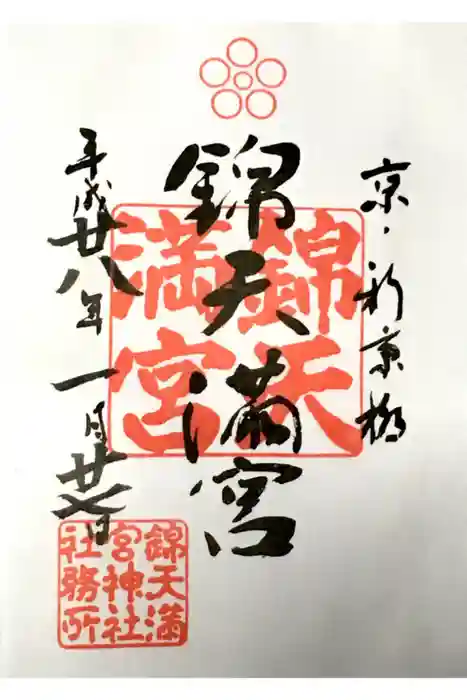 京・新京極
錦天満宮
平成廿八年一月廿七日
錦天
満宮
錦天満
宮神社
社務所